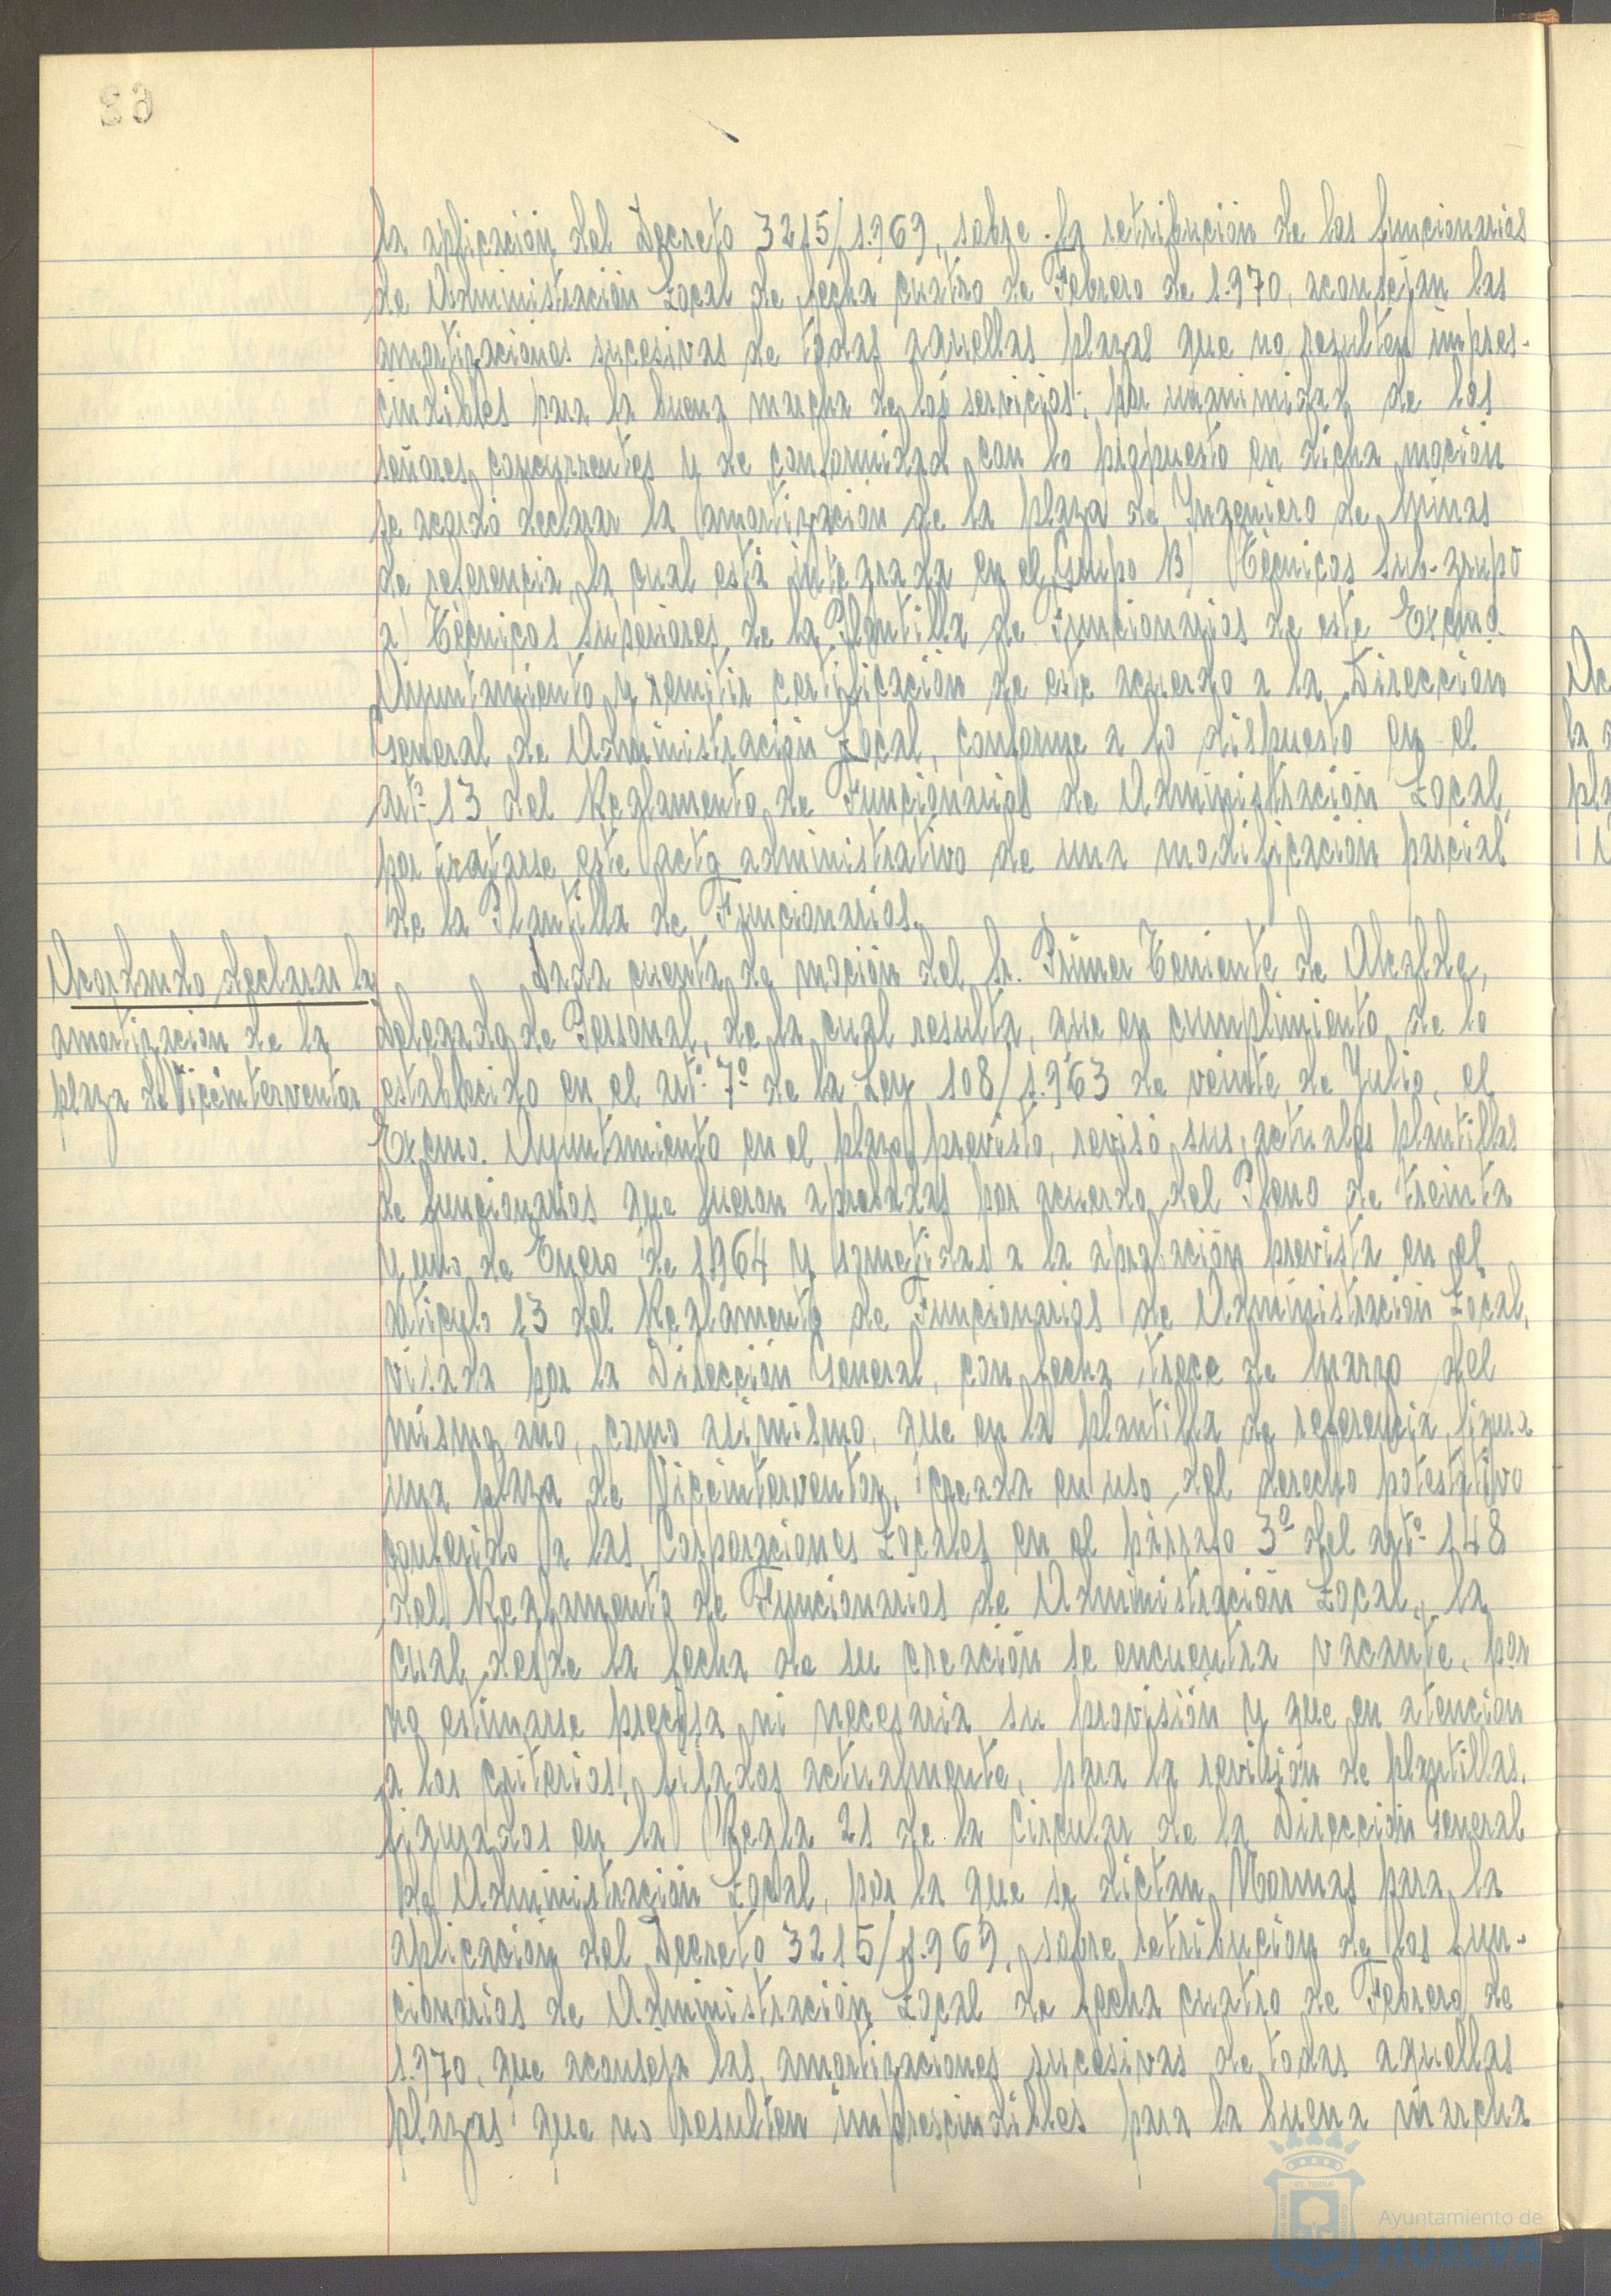 la aplicación del Decreto 3215/1.969, sobre la retribución de los funcionarios
de Administración Local de fecha cuatro de Febrero de 1.970, aconsejan las
amortizaciones sucesivas de todas aquellas plazas que no resulten impres-
cindibles para la buena marcha de los servicios; por unanimidad de los
señores concurrentes y de conformidad con lo propuesto en dicha moción
se acordó declarar la amortización de la plaza de Ingeniero de Minas
de referencia, la cual está integrada en el Grupo B) Técnicos sub-grupo
a) Técnicos Superiores, de la Plantilla de Funcionarios de este Excmo.
Ayuntamiento y remitir certificación de este acuerdo a la Dirección
General de Administración Local, conforme a lo dispuesto en el
artº 13 del Reglamento de Funcionarios de Administración Local,
por tratarse este acto administrativo de una modificación parcial
de la Plantilla de Funcionarios.
Acordando declarar la
amortización de la
plaza de Viceinterventor
Dada cuenta de moción del Sr. Primer Teniente de Alcalde,
delegado de Personal, de la cual resulta, que en cumplimiento de lo
establecido en el artº 7º de la Ley 108/1.963 de veinte de Julio, el
Excmo. Ayuntamiento en el plazo previsto, revisó sus actuales plantillas
de funcionarios que fueron aprobadas por acuerdo del Pleno de treinta
y uno de Enero de 1.964 y sometidas a la aprobación prevista en el
artículo 13 del Reglamento de Funcionarios de Administración Local,
visada por la Dirección General, con fecha trece de Marzo del
mismo año, como asimismo, que en la plantilla de referencia, figura
una plaza de Viceinterventor, creada en uso del derecho potestativo
conferido a las Corporaciones Locales en el párrafo 3º del artº 148
del Reglamento de Funcionarios de Administración Local, la
cual desde la fecha de su creación se encuentra vacante, por
no estimarse precisa ni necesaria su provisión y que en atención
a los criterios, fijados actualmente, para la revisión de plantillas,
figurados en la Regla 21 de la Circular de la Dirección General
de Administración Local, por la que se dictan Normas para la
aplicación del Decreto 3215/1.969, sobre retribución de los fun-
cionarios de Administración Local de fecha cuatro de Febrero de
1.970, que aconseja las amortizaciones sucesivas de todas aquellas
plazas que no resulten imprescindibles para la buena marcha
Ayuntamiento de
HUELVA